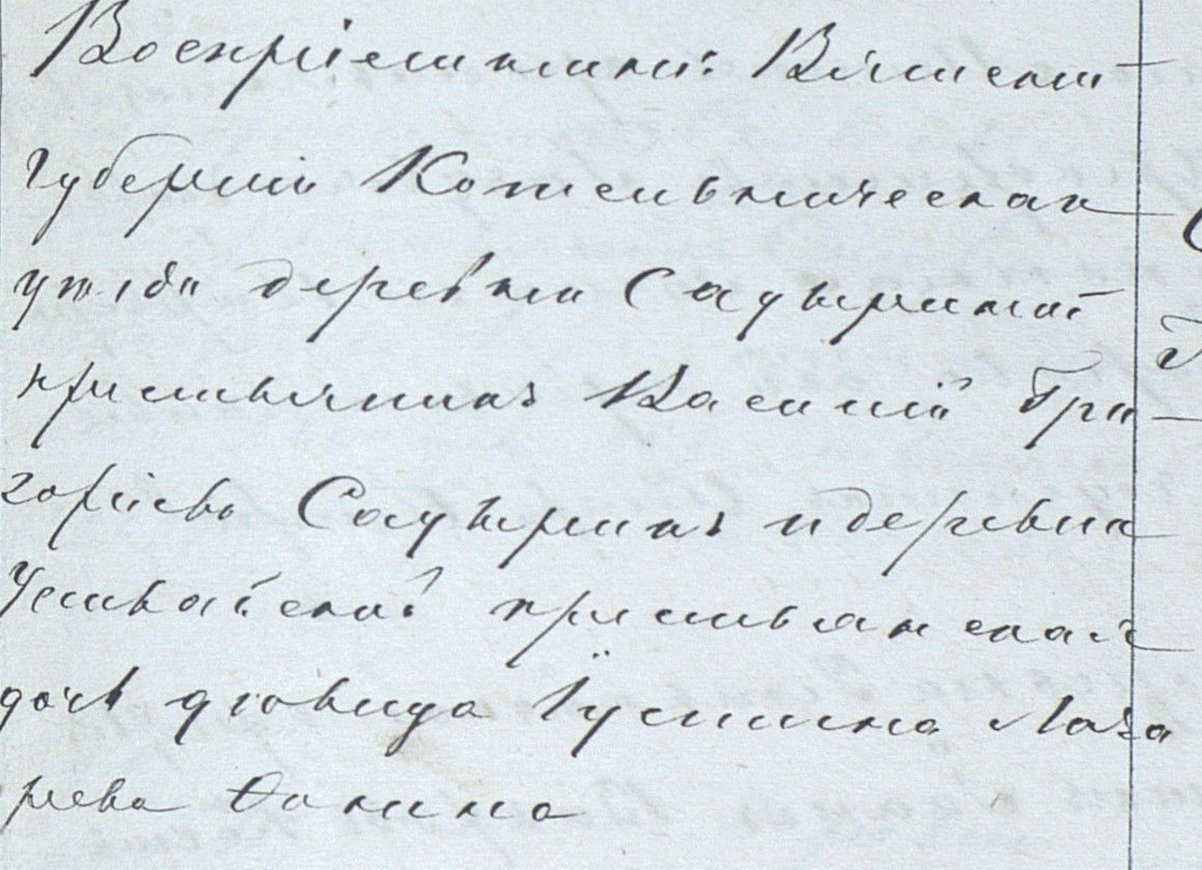 Воспріемники: Вятской
губерніи Котельническаго
уѣзда деревни Саудыринской
крестьянинъ Василій Гри
горіевъ Саудыринъ и деревни
крестьянская
дочь дѣвица Іустина Лаза
рева Ѳокина